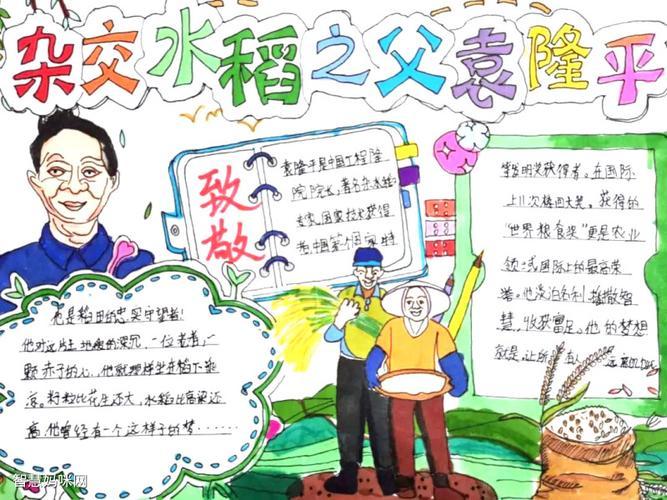 杂交水稻之父袁隆平
致敬
袁隆平是中国工程隆
院院长，著名杂交水稻
专家，国家技术获得
者中国第一个国家特
等发明奖获得者。在国际
上11次梅回大奖。获得的
"世界粮食奖"更是农业
领域国际上的最高荣
誉。他淡泊名利
慧，收获富足。他的梦想
就是，让所有人
他是稻田的忠实守望者！
他对这片土地爱的深沉，一位老者，一
颗赤子的心，他就想样坐在稻下乘
凉。籽粒比花生还大，水稻比高粱还
高，他曾经有一个这样子的梦······
智慧妈咪网